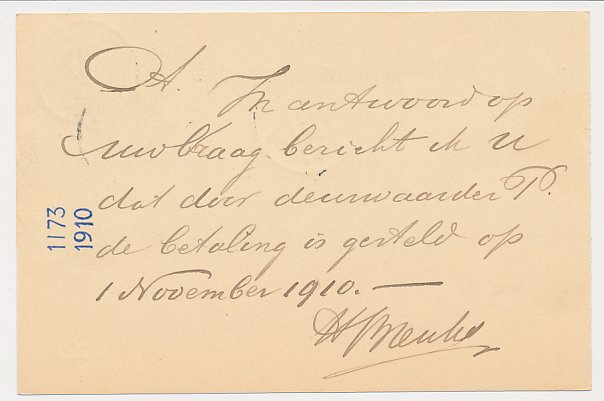 A. In antwoord op
uw vraag bericht ik U
dat door deurwaarder P.
de betaling is gesteld op
1 November 1910.—
1173
1910